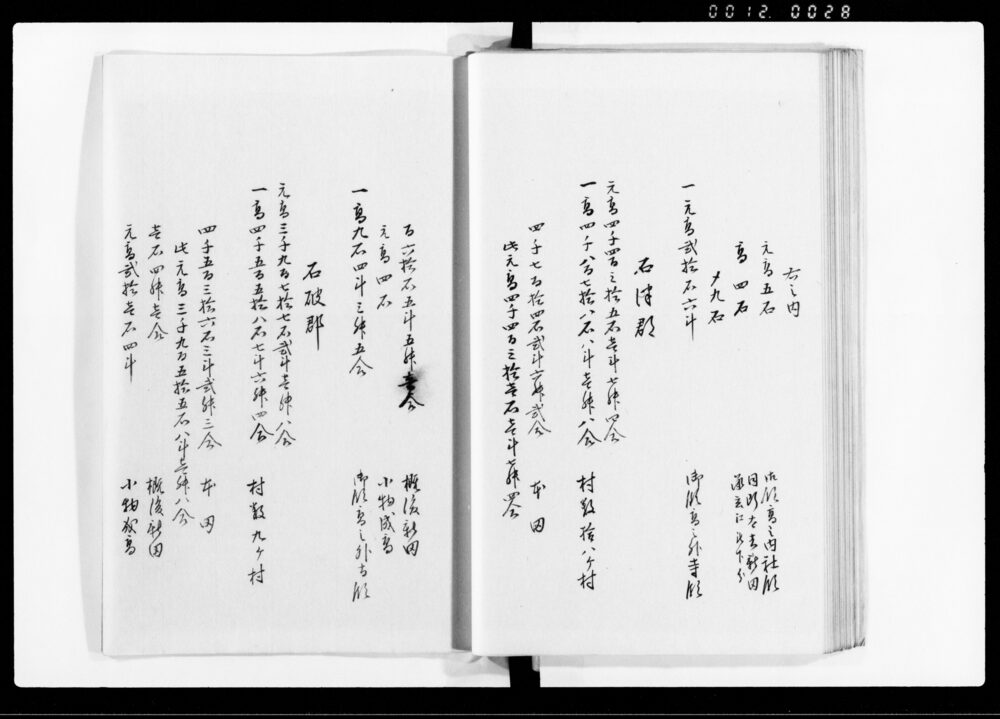 0012. 0028
右之内
元高五石 御領高之内社領
高四石
〆九石
一元高弐拾石六斗 御領高之外寺領
石津郡
元高四千四百三拾五石壱斗七升四合
一高四千八百七拾八石八斗壱升八合 村数拾八ヶ村
四千七百拾四石弐斗六升弐合 本田
此元高四千四百三拾壱石壱斗七升四合
百六拾石五斗五升壱合 概後新田
元高四石 小物成高
一高九石四斗三升五合 御領高之外寺領
石破郡
元高三千九百七拾七石弐斗壱升八合
一高四千五百五拾八石七斗六升四合 村数九ヶ村
四千五百三拾六石三斗弐升三合 本田
此元高三千九百五拾五石八斗壱升八合
壱石四升壱合 概後新田
元高弐拾壱石四斗 小物成高